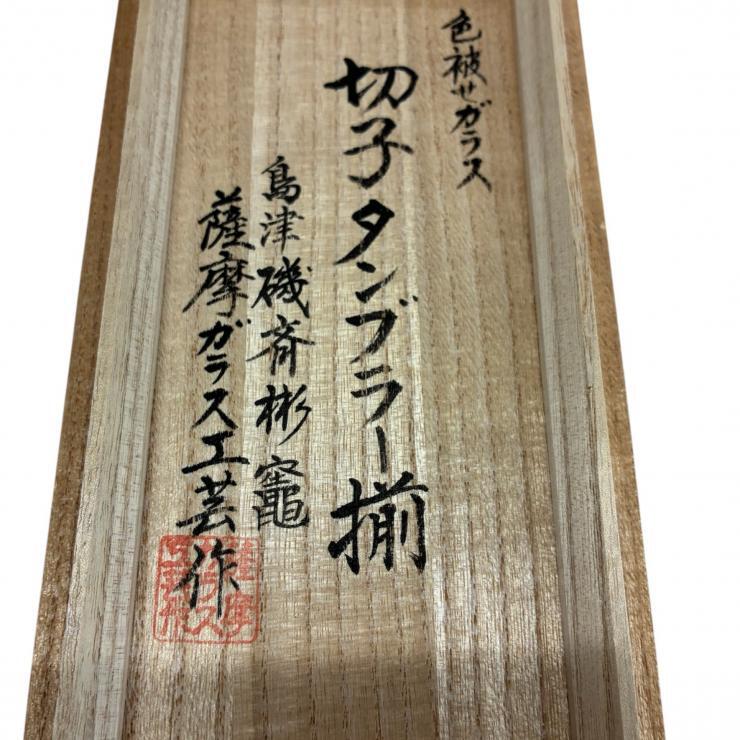 色被せガラス
切子タンブラー揃
島津磯斉彬竈
薩摩ガラス工芸作